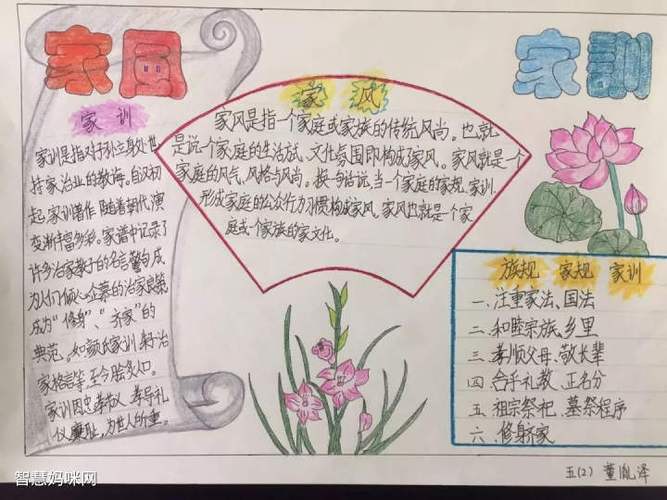 家风
家训
家训
家训是指对子孙立身处世
持家治业的教诲。自汉初
起,家训著作随着朝代演
变渐丰富多彩。家谱中记录了
许多治家教子的名言警句,成
为人们倾心企慕的治家良策,
成为“修身”、“齐家”的
典范。如颜氏家训
家格言等,至今脍炙人口。
家训因史
仪廉耻,为世人所重。
家风
家风是指一个家庭或家族的传统风尚。也就
是说一个家庭的生活方式、文化氛围即构成了家风。家风就是一个
家庭的风气、风格与风尚。换句话说,当一个家庭的家规、家训
形成家庭的公众行为习惯构成家风。家风也就是一个家
庭或一个家族的家文化。
族规 家规 家训
一、注重家法、国法
二、和睦宗族、乡里
三、孝顺父母、敬长辈
四、合乎礼教、正名分
五、祖宗祭祀、墓祭程序
六、修身齐家
五(2) 董胤泽
智慧妈咪网